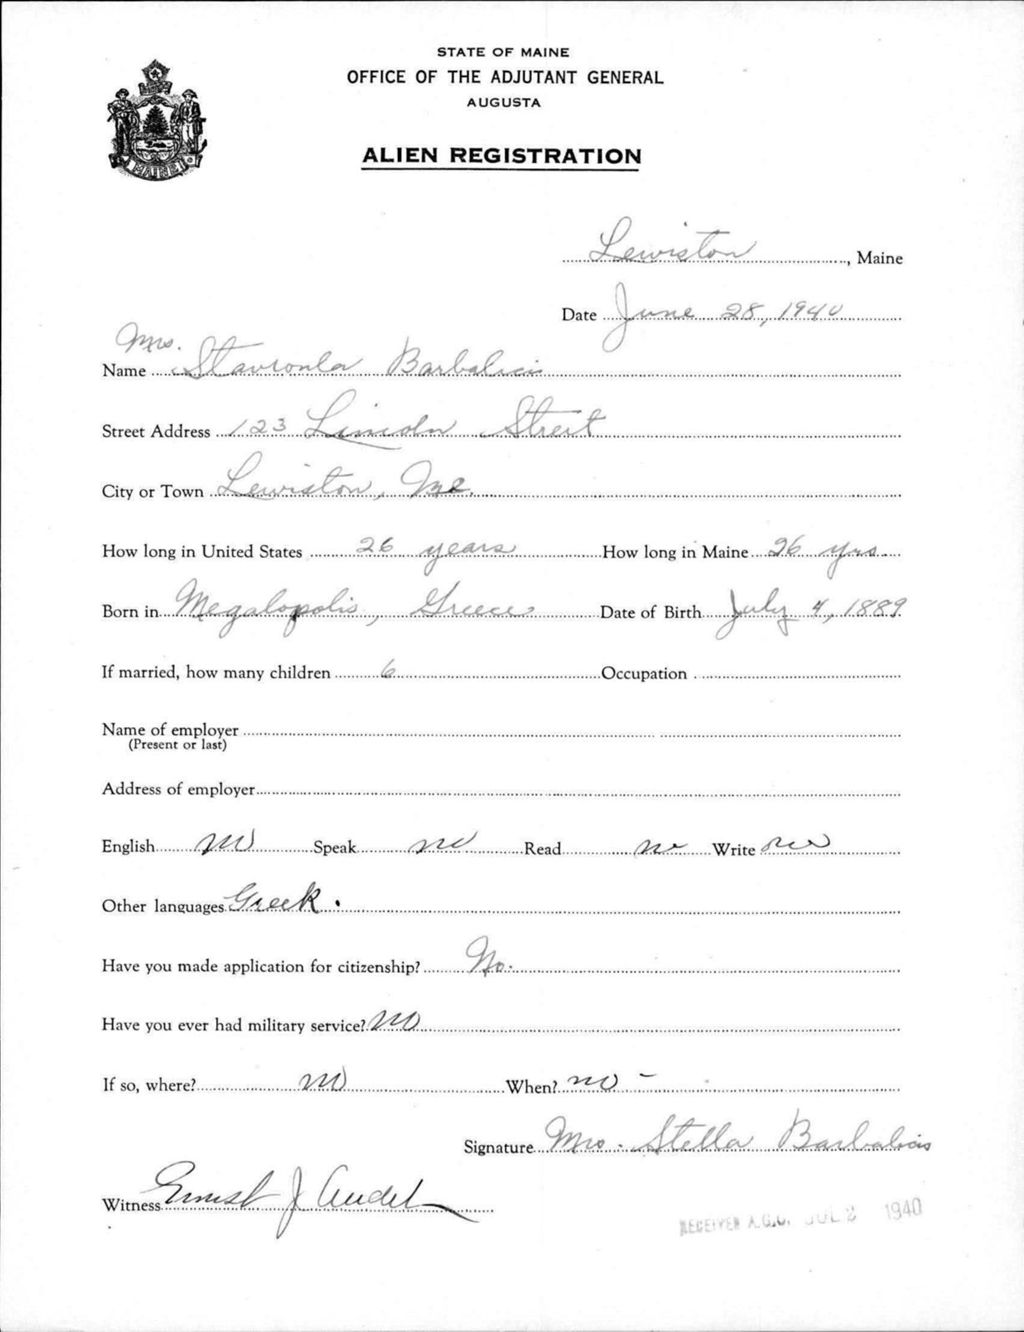 STATE OF MAINE
OFFICE OF THE ADJUTANT GENERAL
AUGUSTA
ALIEN REGISTRATION
Lewiston, Maine
Date June 28, 1940
Mrs.
Name Stavroula Barbalias
Street Address 123 Lincoln Street
City or Town Lewiston, Me.
How long in United States 26 years How long in Maine 26 yrs.
Born in Megalopolis, Greece Date of Birth July 4, 1889
If married, how many children 6 Occupation
Name of employer
(Present or last)
Address of employer
English no Speak no Read no Write no
Other languages Greek.
Have you made application for citizenship? No.
Have you ever had military service? no
If so, where? no When? no -
Signature Mrs. Stella Barbalias
Witness Ernest J
RECEIVED A.G.O. JUL 2 1940